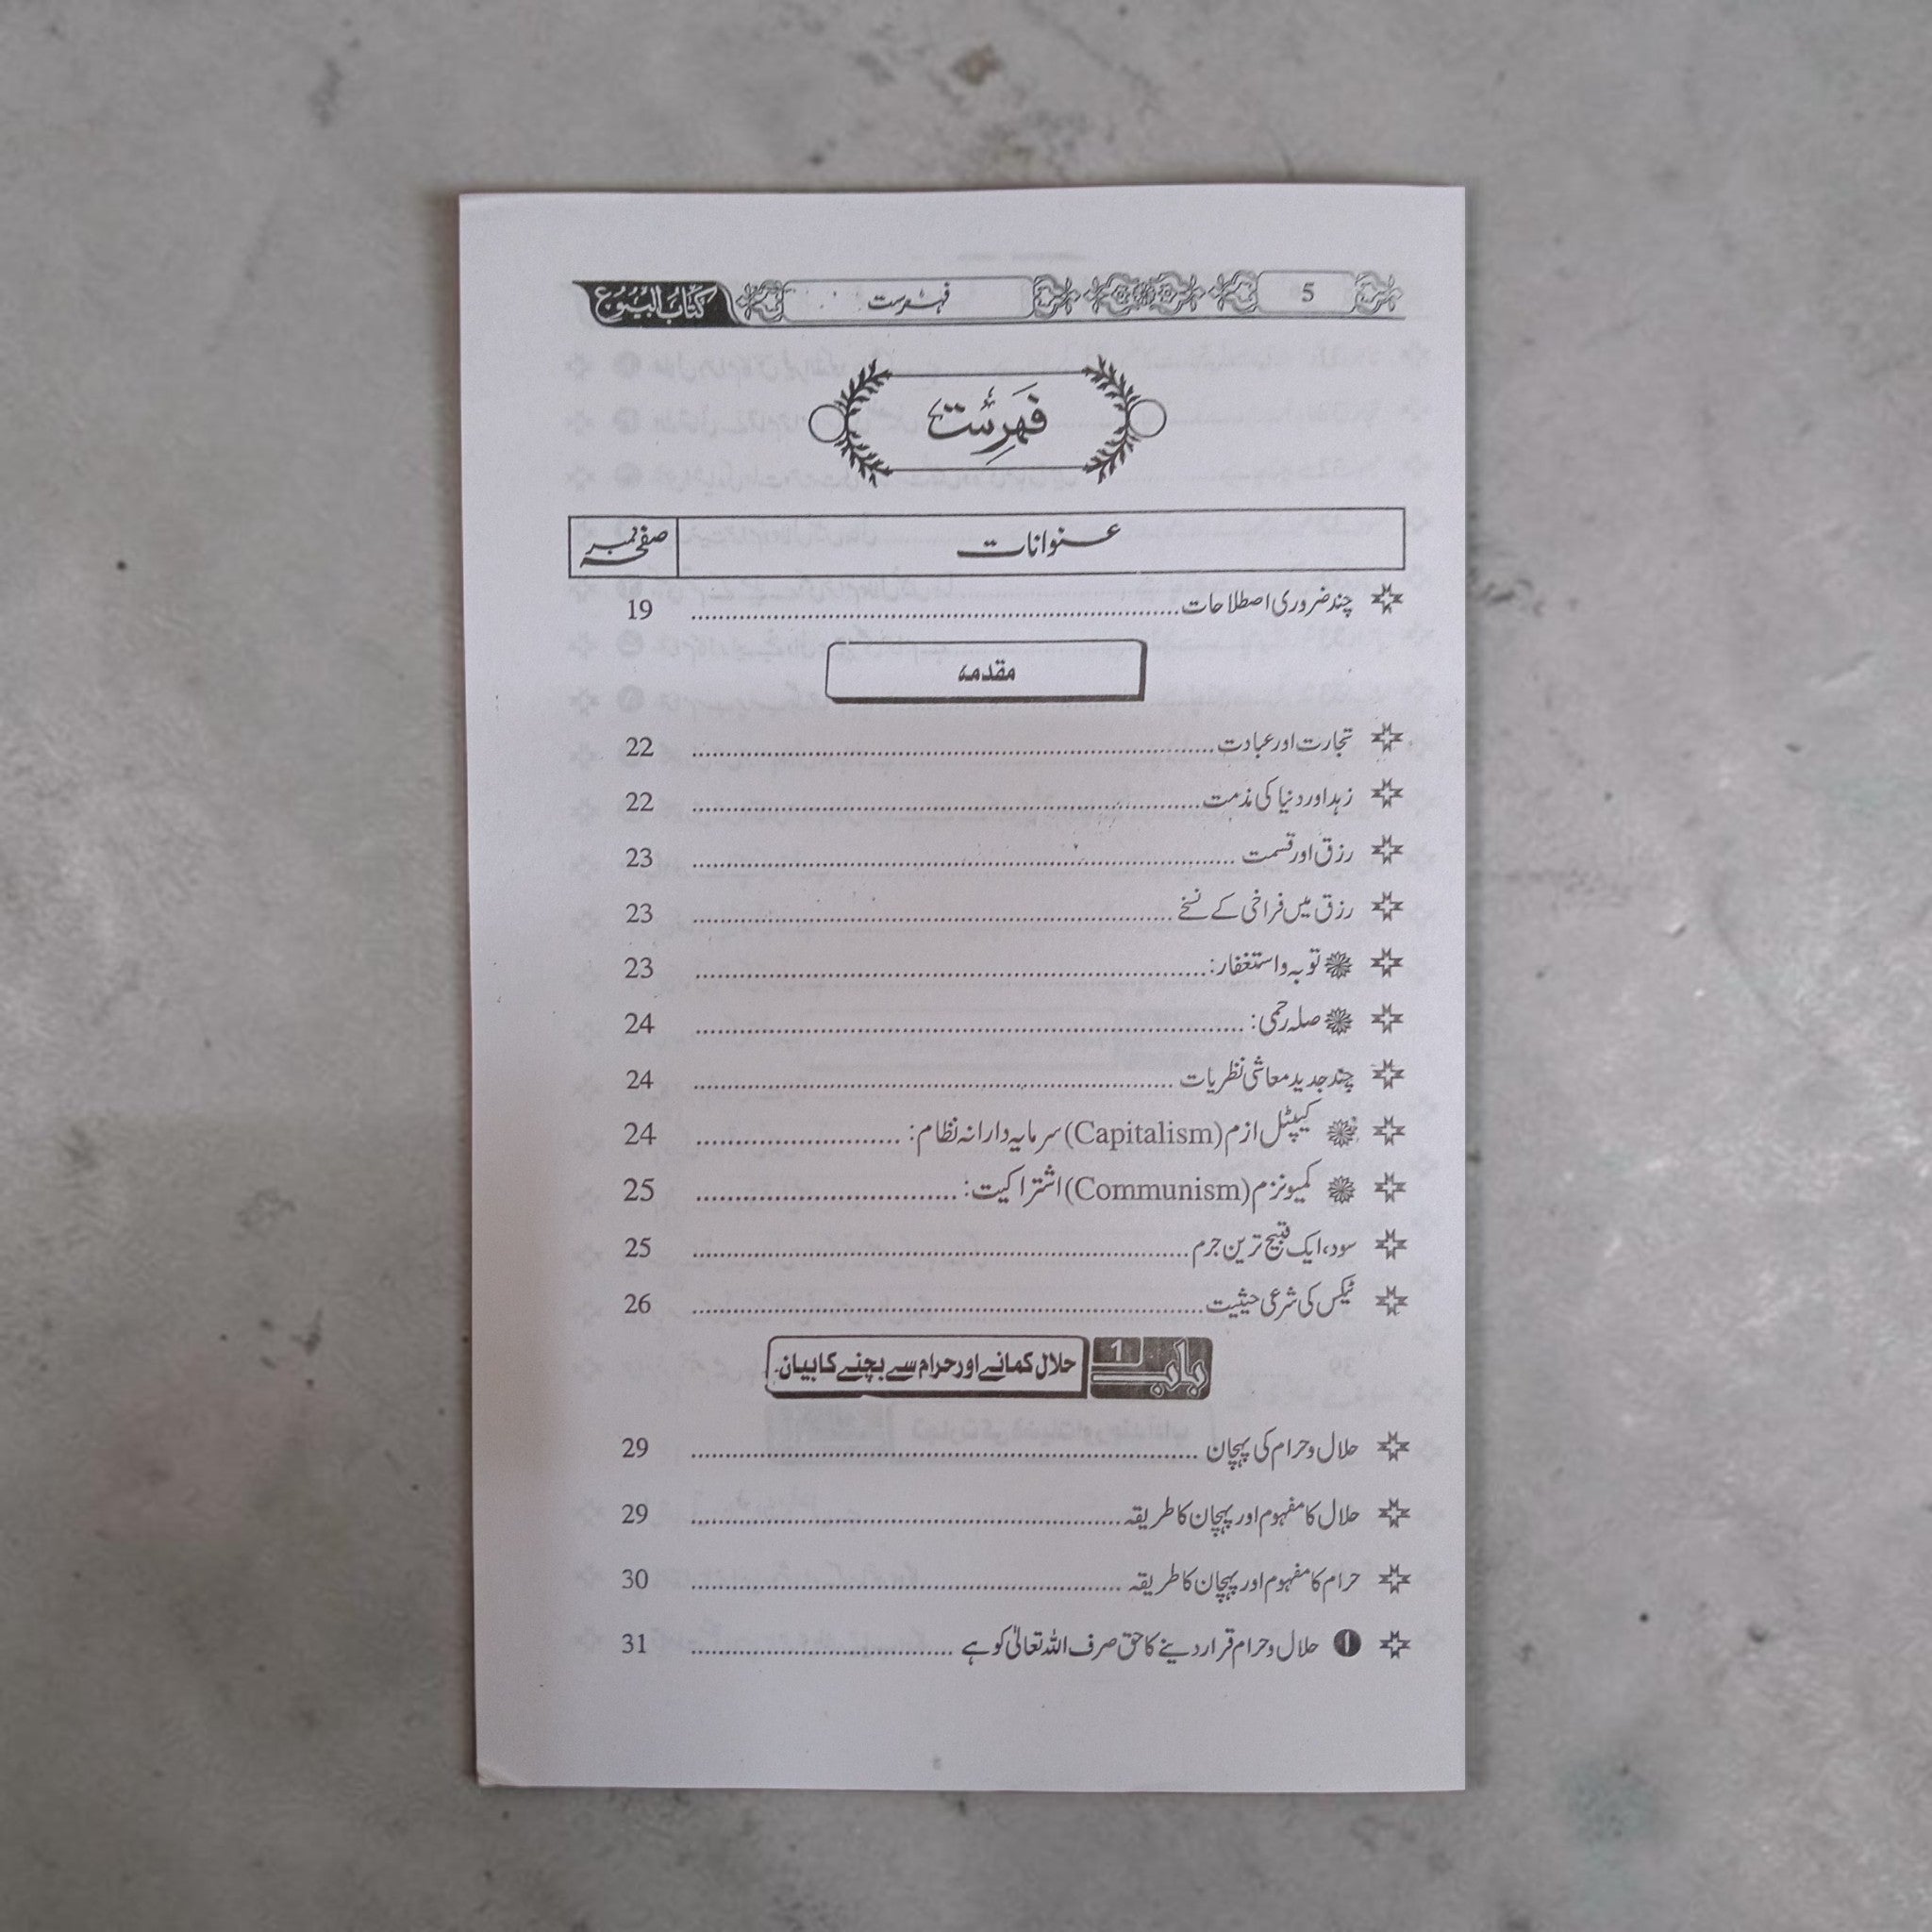 5 فہرست کتاب البیوع
فہرست
عنوانات صفحہ نمبر
چند ضروری اصطلاحات 19
مقدمہ
تجارت اور عبادت 22
زہد اور دنیا کی مذمت 22
رزق اور قسمت 23
رزق میں فراخی کے نسخے 23
توبہ و استغفار: 23
صلہ رحمی: 24
چند جدید معاشی نظریات 24
کیپٹل ازم (Capitalism) سرمایہ دارانہ نظام: 24
کمیونزم (Communism) اشتراکیت: 25
سود، ایک قبیح ترین جرم 25
ٹیکس کی شرعی حیثیت 26
باب 1 حلال کمانے اور حرام سے بچنے کا بیان
حلال و حرام کی پہچان 29
حلال کا مفہوم اور پہچان کا طریقہ 29
حرام کا مفہوم اور پہچان کا طریقہ 30
① حلال و حرام قرار دینے کا حق صرف اللہ تعالیٰ کو ہے 31